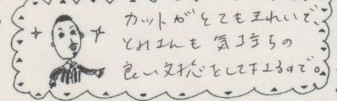 カットがとてもきれいで、
とみさんも気持ちの
良い対応をして下さるので。